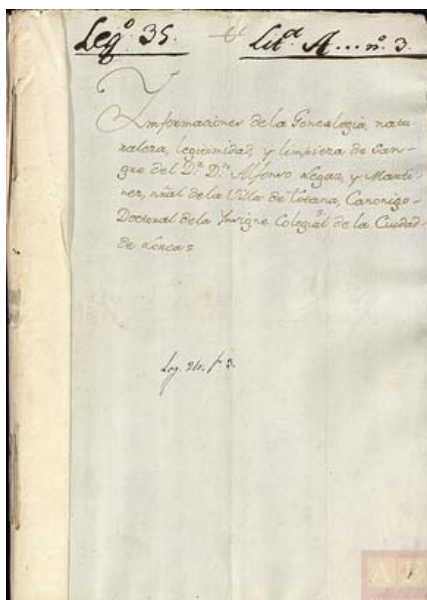 Legº. 35. Litª. A... nº. 3.
Imformaciones de la Genealogia, natu-
raleza, legitimidad, y limpieza de San-
gre del Dr. Dn. Alfonso Legaz, y Marti-
nez, nãl de la Villa de Totana, Canonigo
Doctoral de la Insigne Colegial de la Ciudad
de Lorca=
Leg. 210. 3.